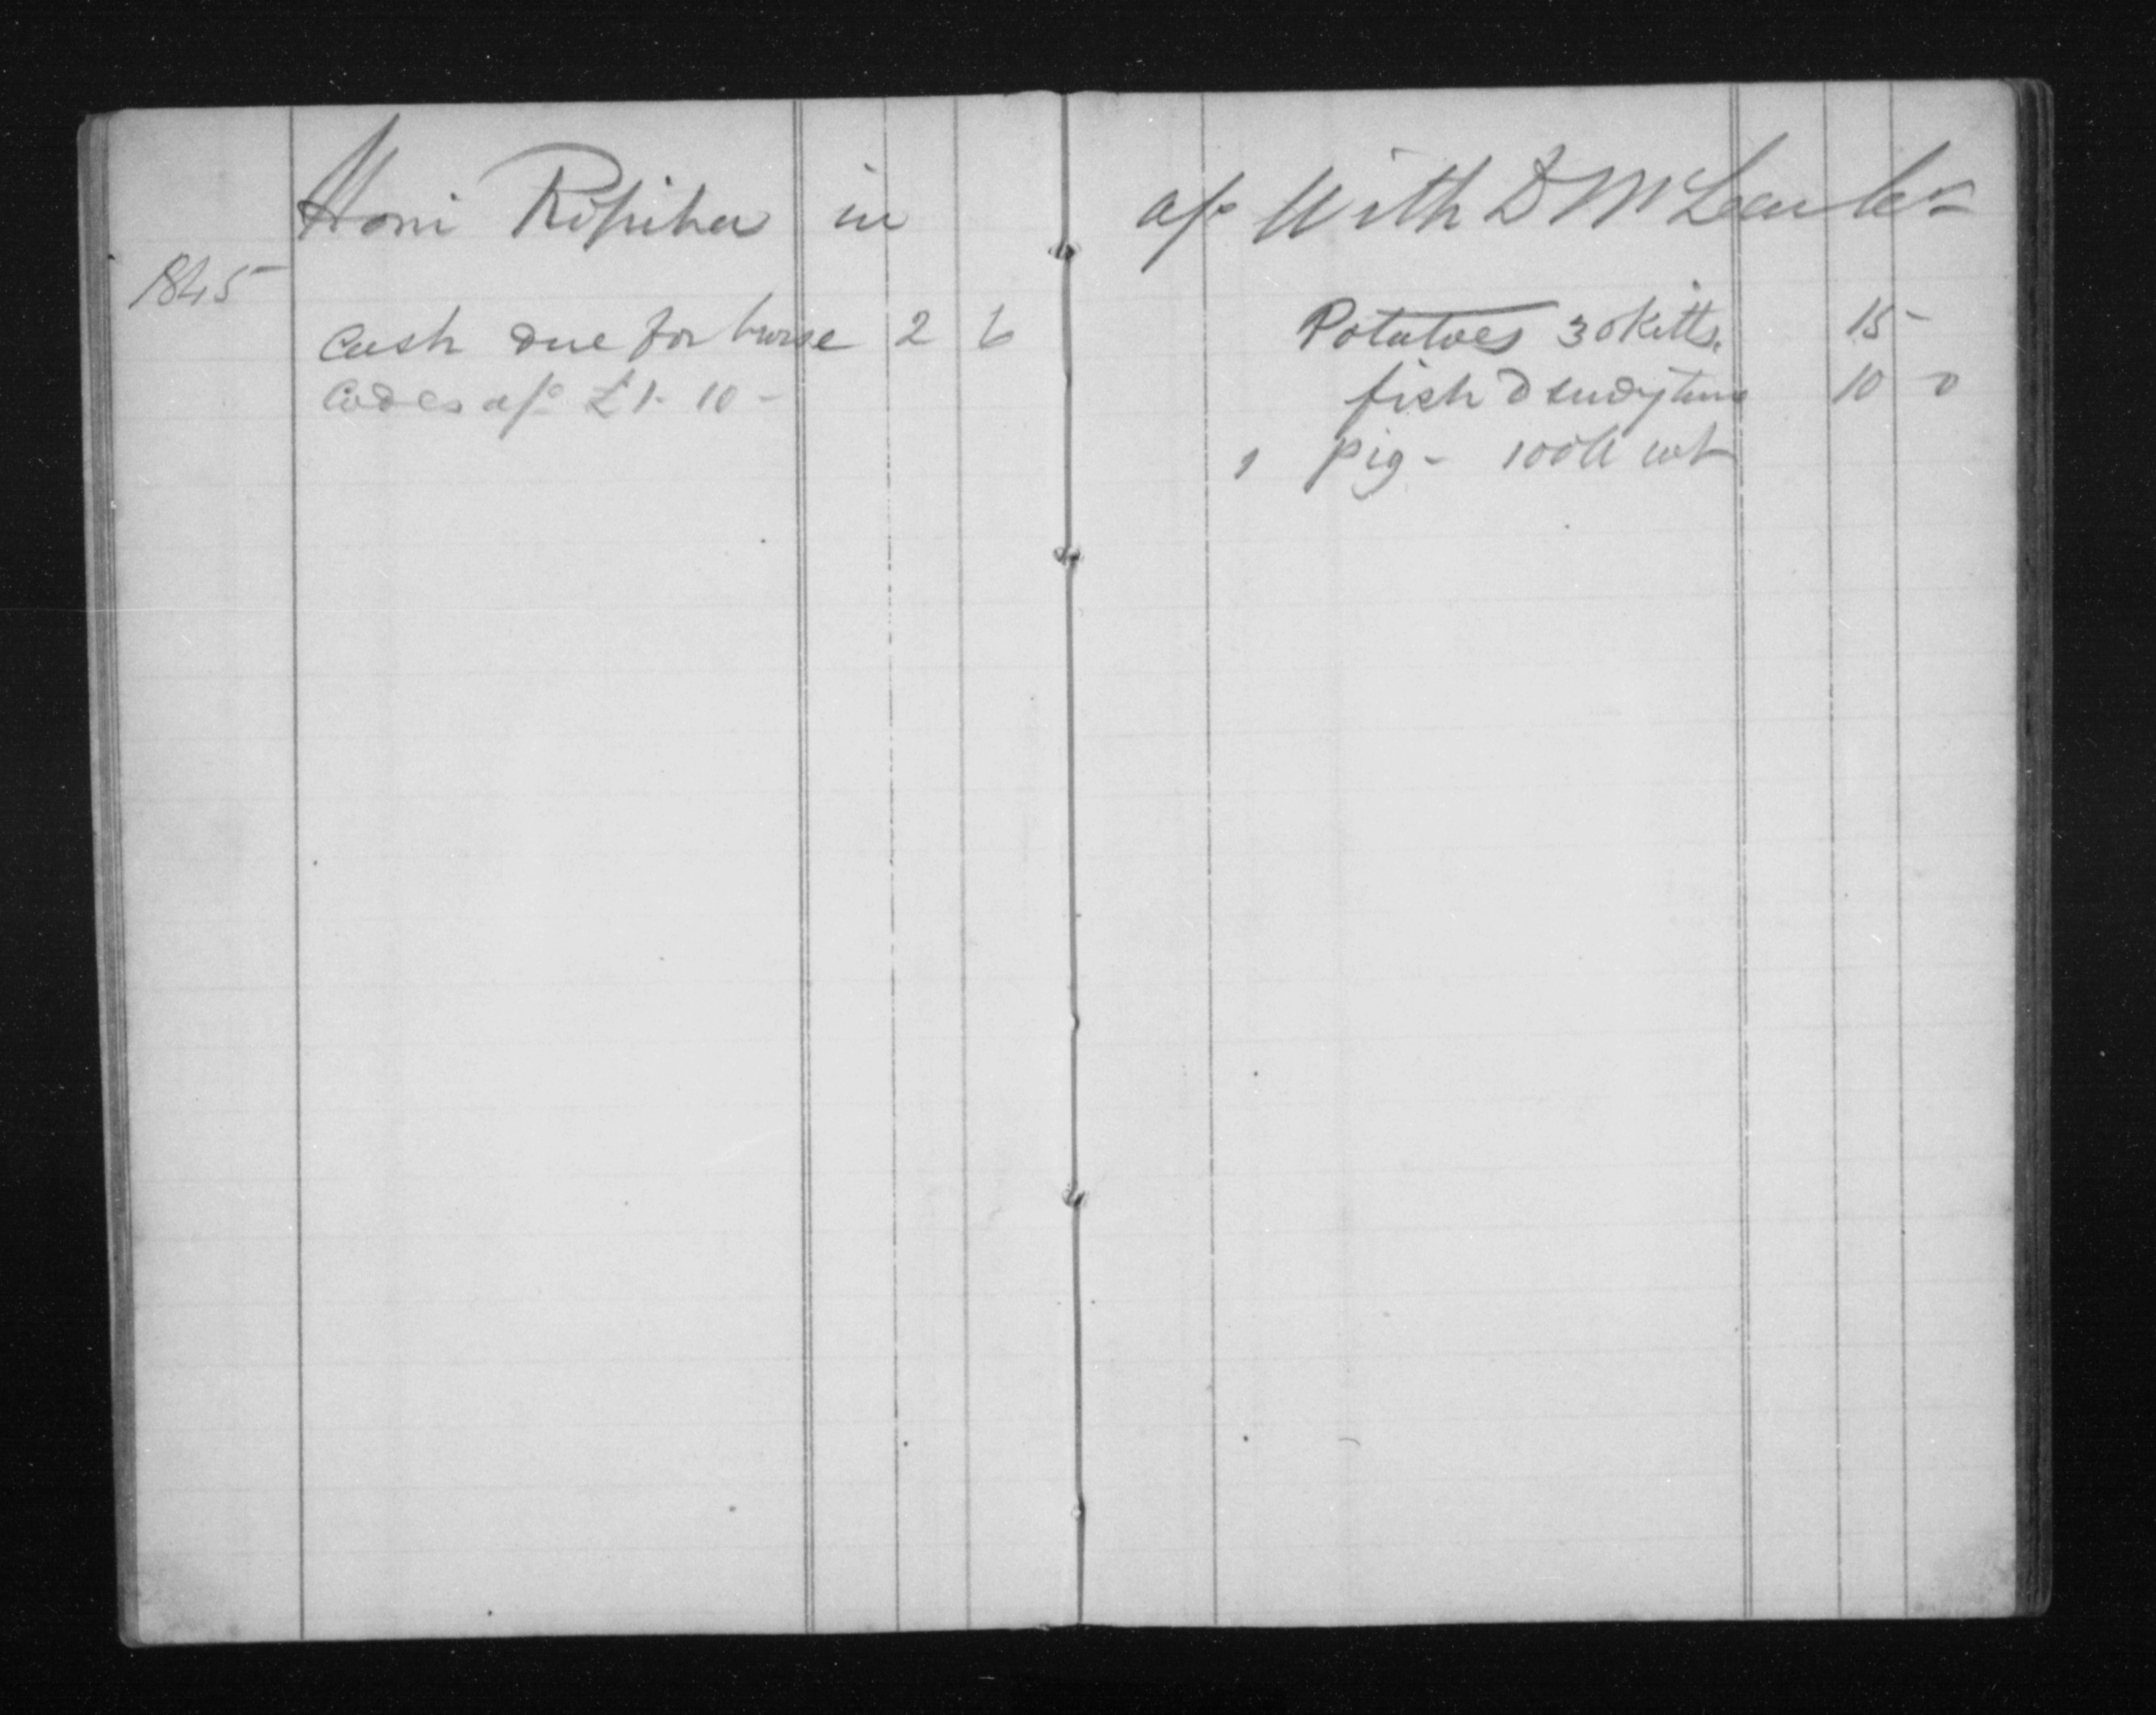 Honi Ropiha in
1845
Cash due for horse 2 6
a/c £1. 10 -
a/c With D McLean Cr
Potatoes 30 Kitts. 15 -
fish 10 0
1 pig - 100 lb wt